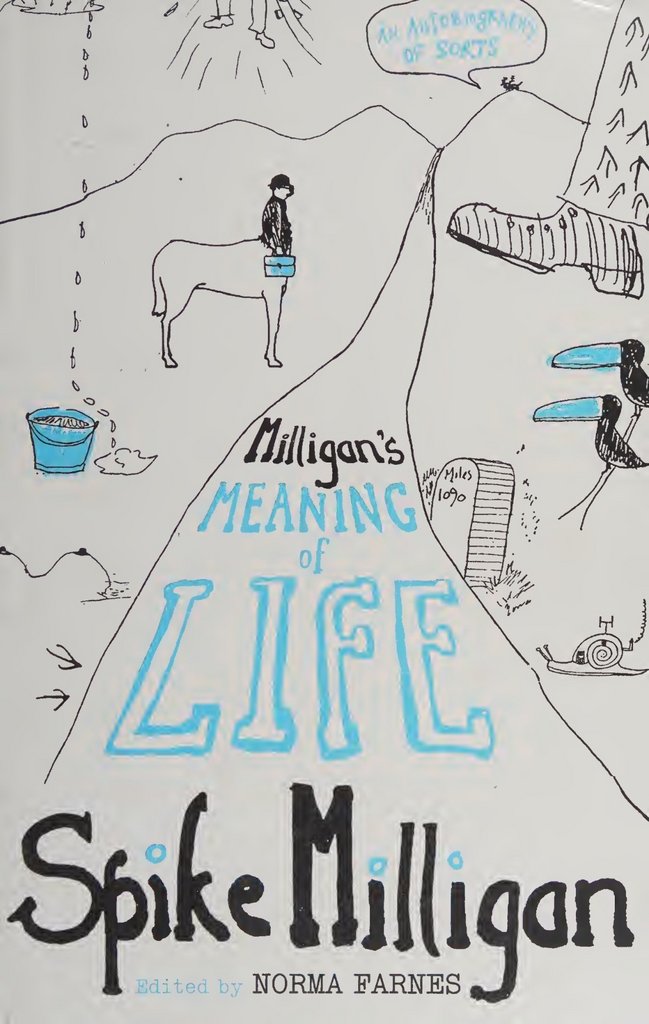 AN AUTOBIOGRAPHY
OF SORTS
Milligan's
MEANING
of
LIFE
Miles
1090
Spike Milligan
Edited by NORMA FARNES